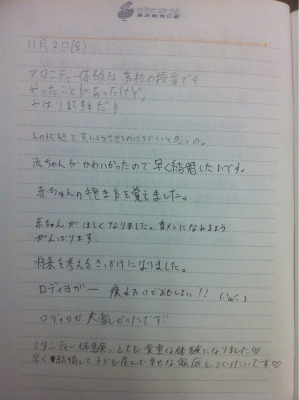 11月2日(金)
マタニティー体験は高校の授業でも
やったことがあったけど、
やはり大変だ!
この状態で
赤ちゃんがかわいかったので早く結婚したいです。
赤ちゃんの抱き方を覚えました。
赤ちゃんがほしくなりました。育メンになれるよう
がんばります。
将来を考えるきっかけになりました。
ロディヨガー 疲れたけどおもしろい!! (´ω`)
ロディヨガ 楽しかったです!!
マタニティー体験、とても貴重な体験になりました♡
早く結婚して子ども産んで幸せな家庭をつくりたいです♡